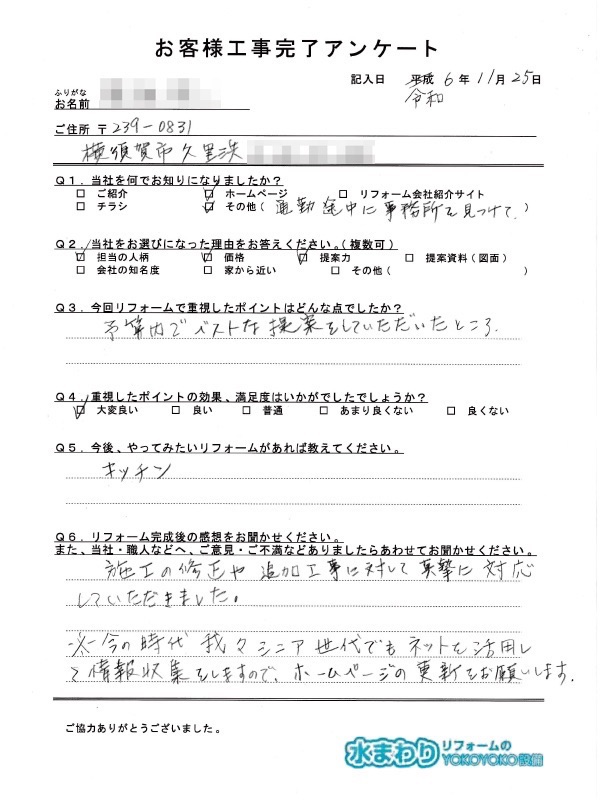 お客様工事完了アンケート
記入日 平成 6 年 11 月 25 日
令和
ふりがな
お名前
ご住所 〒 239-0831
横須賀市久里浜
Q1．当社を何でお知りになりましたか？
□ ご紹介 ☑ ホームページ □ リフォーム会社紹介サイト
□ チラシ ☑ その他（通勤途中に事務所を見つけて。）
Q2．当社をお選びになった理由をお答えください。（複数可）
☑ 担当の人柄 ☑ 価格 ☑ 提案力 □ 提案資料（図面）
□ 会社の知名度 □ 家から近い □ その他（ ）
Q3．今回リフォームで重視したポイントはどんな点でしたか？
予算内でベストな提案をしていただいたところ.
Q4．重視したポイントの効果、満足度はいかがでしたでしょうか？
☑ 大変良い □ 良い □ 普通 □ あまり良くない □ 良くない
Q5．今後、やってみたいリフォームがあれば教えてください。
キッチン
Q6．リフォーム完成後の感想をお聞かせください。
また、当社・職人などへ、ご意見・ご不満などありましたらあわせてお聞かせください。
施工の修正や追加工事に対して真摯に対応
していただきました。
※今の時代 我々シニア世代でもネットを活用し
て情報収集をしますので、ホームページの更新をお願いします.
ご協力ありがとうございました。
水まわりリフォームの
YOKOYOKO設備